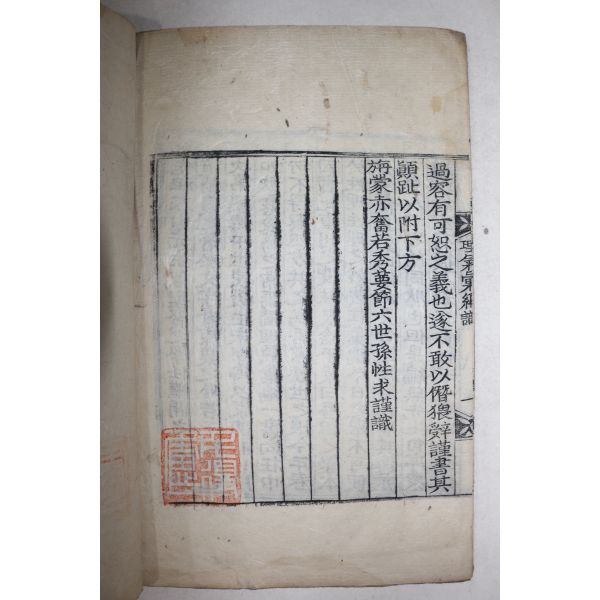 過容有可恕之義也遂不敢以僭猥辭謹書其
顚趾以附下方
旃蒙赤奮若秀葽節六世孫性求謹識